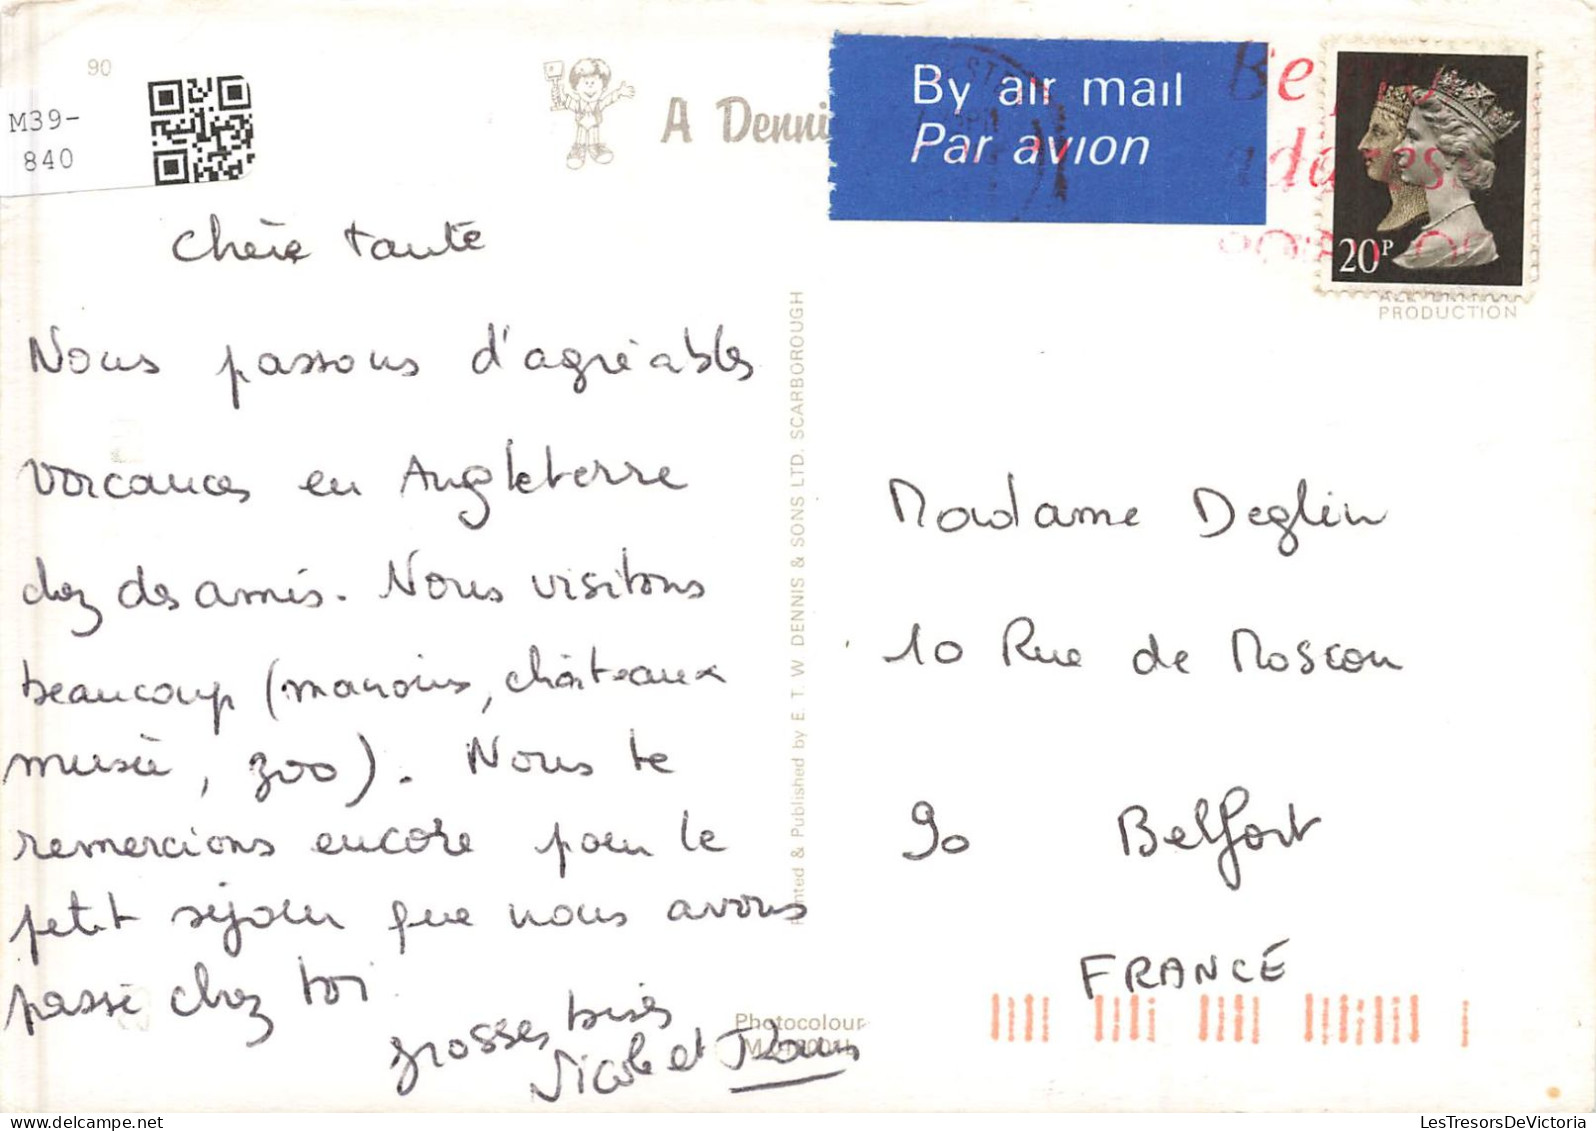 90
M39-
840
A Denni
By air mail
Par avion
Be
20P
PRODUCTION
Chère tante
Nous passons d'agréables
vacances en Angleterre
chez des amis. Nous visitons
beaucoup (manoirs, châteaux
musée, zoo). Nous te
remercions encore pour le
petit séjour que nous avons
passé chez toi.
grosses bises
Nicole et
Printed & Published by E. T. W DENNIS & SONS LTD. SCARBOROUGH
Photocolour
Madame Deglin
10 Rue de Moscou
90 Belfort
FRANCE
LesTresorsDeVictoria